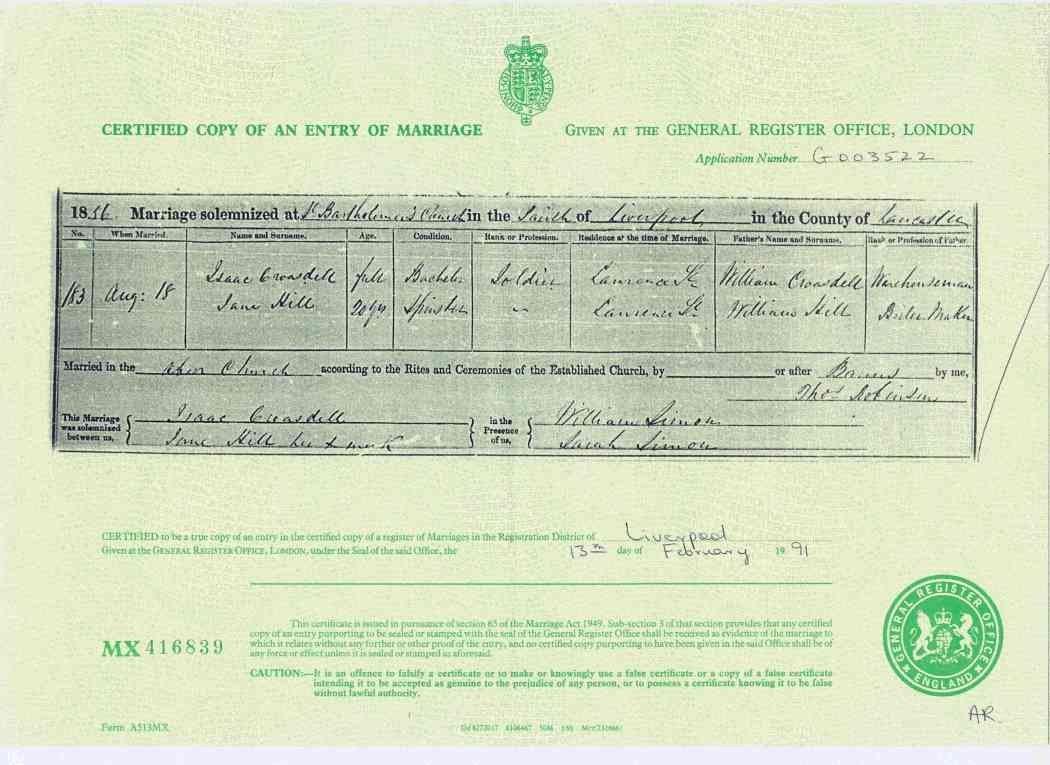 CERTIFIED COPY OF AN ENTRY OF MARRIAGE
GIVEN AT THE GENERAL REGISTER OFFICE, LONDON
Application Number G003522
1856. Marriage solemnized at St Bartholomew's Church in the Parish of Liverpool in the County of Lancaster
No. When Married. Name and Surname. Age. Condition. Rank or Profession. Residence at the time of Marriage. Father's Name and Surname. Rank or Profession of Father.
183 Aug: 18 Isaac Croasdell full Bachelor Soldier Lawrence St William Croasdell Warehouseman
Jane Hill 20 yrs Spinster — Lawrence St William Hill Maker
Married in the above Church according to the Rites and Ceremonies of the Established Church, by or after Banns by me,
Thos. Robinson
This Marriage was solemnized between us, Isaac Croasdell
Jane Hill her x mark
in the Presence of us, William Simon
Sarah Simon
CERTIFIED to be a true copy of an entry in the certified copy of a register of Marriages in the Registration District of Liverpool
Given at the GENERAL REGISTER OFFICE, LONDON, under the Seal of the said Office, the 13th day of February 1991
MX 416839
This certificate is issued in pursuance of section 65 of the Marriage Act 1949. Sub-section 3 of that section provides that any certified
copy of an entry purporting to be sealed or stamped with the seal of the General Register Office shall be received as evidence of the marriage to
which it relates without any further or other proof of the entry, and no certified copy purporting to have been given in the said Office shall be of
any force or effect unless it is sealed or stamped as aforesaid.
CAUTION:—It is an offence to falsify a certificate or to make or knowingly use a false certificate or a copy of a false certificate
intending it to be accepted as genuine to the prejudice of any person, or to possess a certificate knowing it to be false
without lawful authority.
GENERAL REGISTER OFFICE ENGLAND
AR
Form A513MX